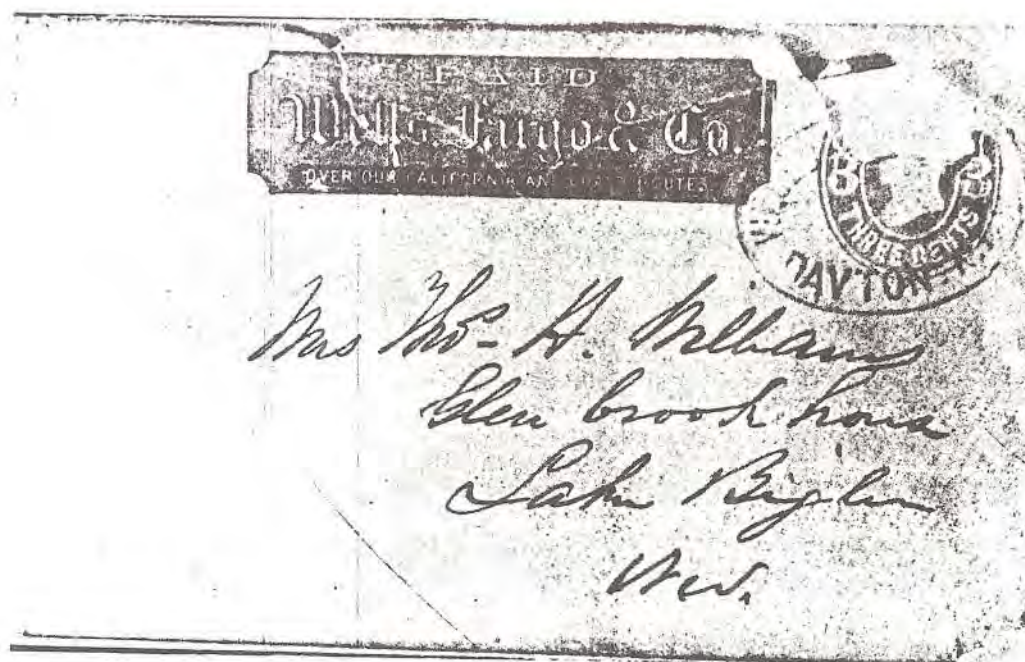 PAID
Wells, Fargo & Co.
OVER OUR CALIFORNIA AND COAST ROUTES
3 3
THREE CENTS
DAYTON N.T.
Mrs Thos. H. Williams
Glen brook house
Lake Bigler
Nev.